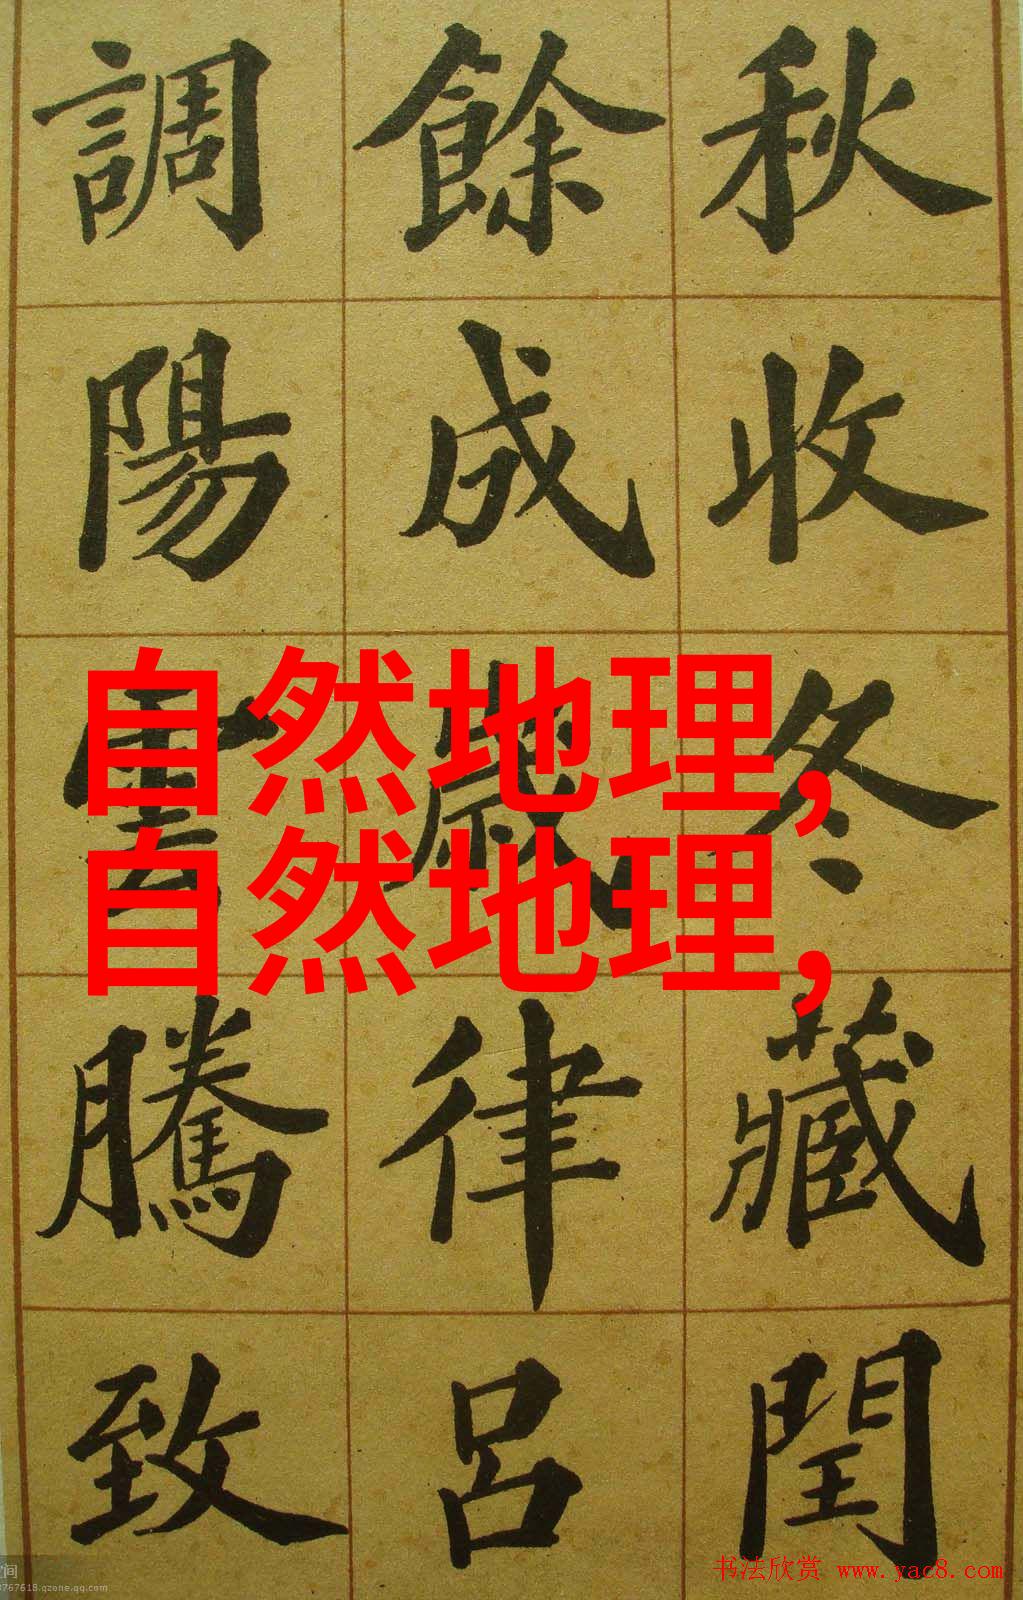 秋收冬藏閏
餘成歲律呂
調陽雲騰致
自然地理,
自然地理,
书法欣赏 www.yac8.com
间
767618.qzone.qq.com